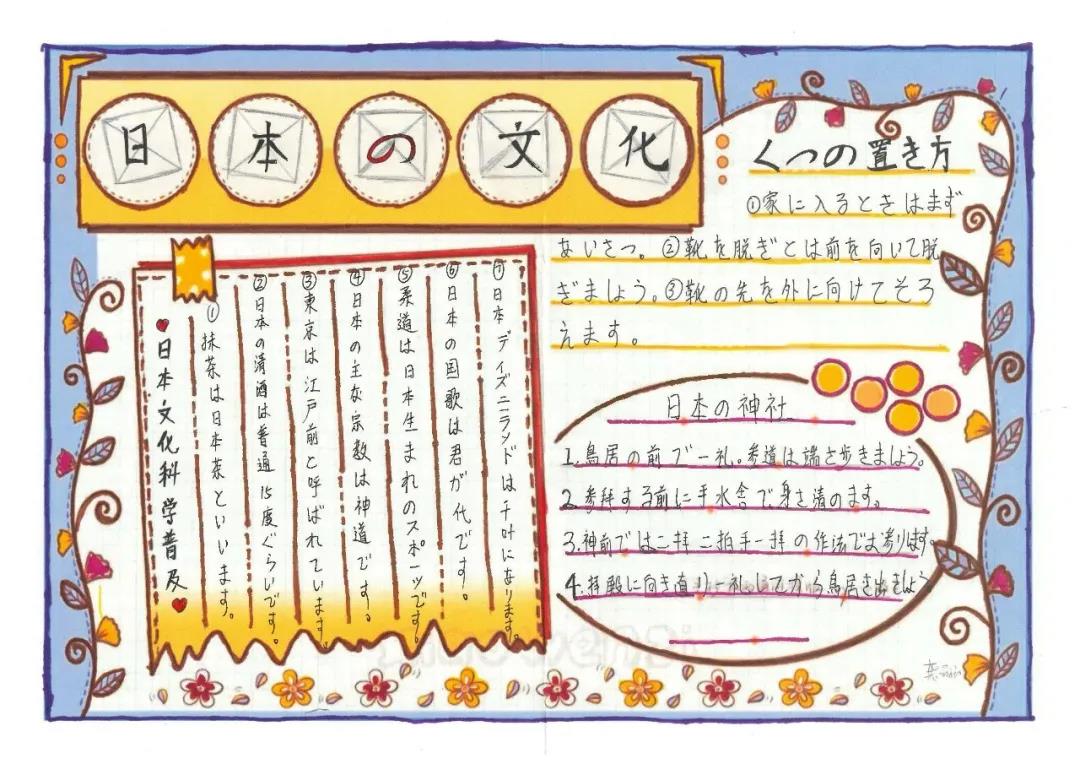 日本の文化
くつの置き方
①家に入るときはまず
あいさつ。②靴を脱ぎとは前を向いて脱
ぎましょう。③靴の先を外に向けてそろ
えます。
♥日本文化科学普及♥
①抹茶は日本茶といいます。
②日本の清酒は普通15度ぐらいです。
③東京は江戸前と呼ばれています。
④日本の主な宗教は神道です。
⑤柔道は日本生まれのスポーツです。
⑥日本の国歌は君が代です。
⑦日本ディズニランドは千叶になります。
日本の神社
1.鳥居の前で一礼。参道は端を歩きましょう。
2.参拝する前に手水舎で身を清めます。
3.神前では二拝二拍手一拝の作法でお参ります。
4.拝殿に向き直り一礼してから鳥居を出ましょ